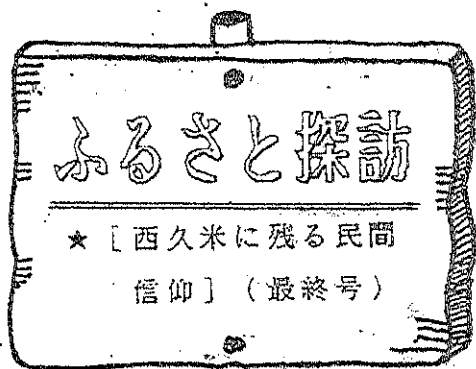 ふるさと探訪
★［西久米に残る民間
信仰］（最終号）